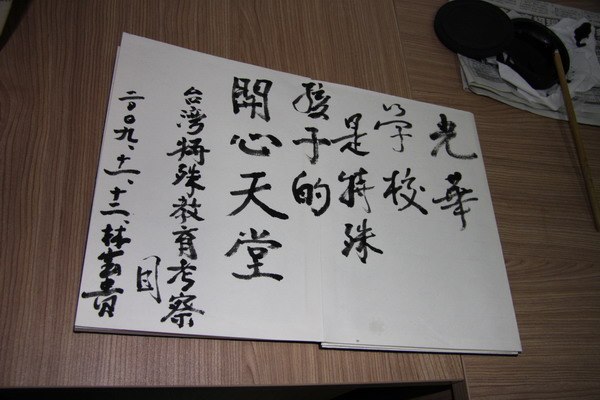 光華
学校
是特殊
孩子的
開心天堂
台湾特殊教育考察
团
二〇〇九、十一、十二、林云青